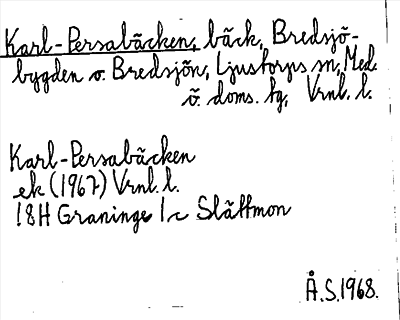 Karl-Persabäcken, bäck, Bredsjö-
bygden o. Bredsjön, Ljustorps sn, Med.
ö. doms. tg, Vrnl. l.
Karl-Persabäcken
ek (1967) Vrnl. l.
18H Graninge 1c Slättmon
Å.S. 1968.